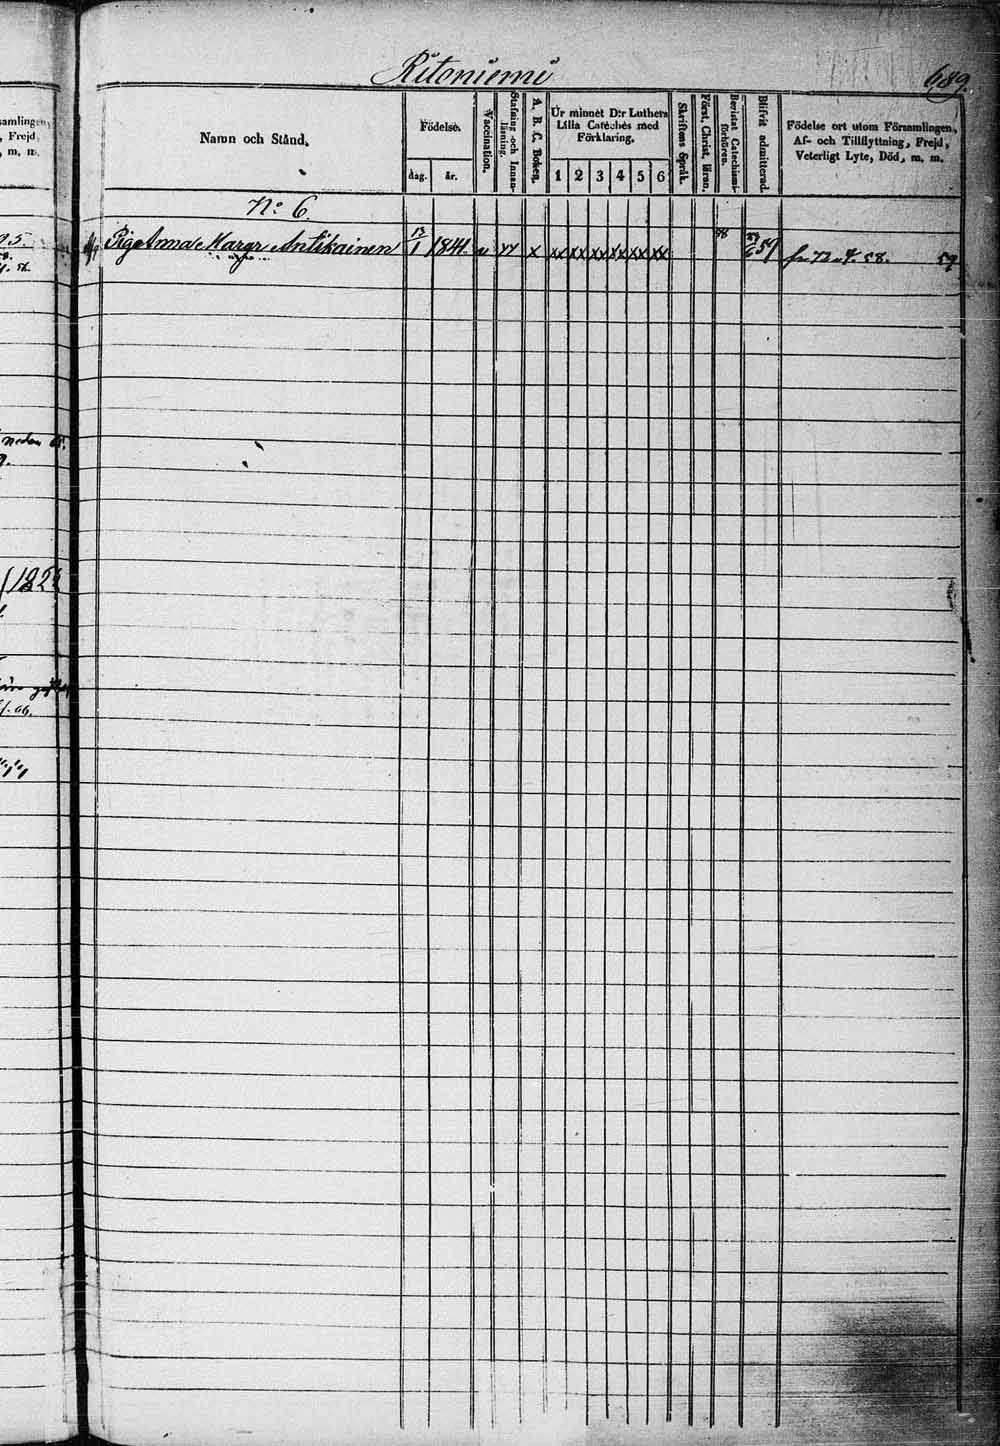 Ritoniemi
689.
amlingen,
, Frejd,
, m, m.
Namn och Stånd,
Födelse.
dag.
år.
Vaccination.
Stafning och Innanläsning.
A. B. C. Boken.
Ur minnet D:r Luthers
Lilla Cateches med
Förklaring,
1 2 3 4 5 6
Skriftens Språk.
Först. Christ. läran.
Bevistat Catechismiförhören.
Blifvit admitterad.
Födelse ort utom Församlingen,
Af- och Tillflyttning, Frejd,
Veterligt Lyte, Död, m. m.
No 6.
Pig. Anna Margr Antikainen 13/1 1841. v yy x xx xx xx xx xx xx 58 57 58. 59
nedan
1822